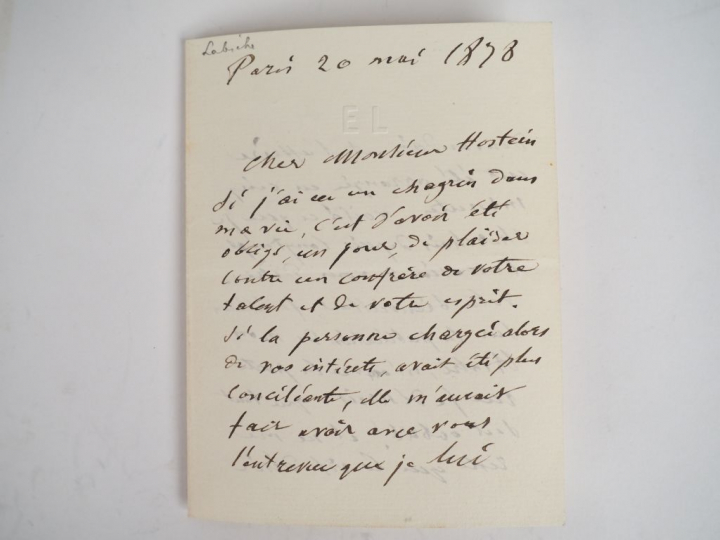 Labiche
Paris 20 mai 1878
E L
Cher Monsieur Hostein
Si j'ai eu un chagrin dans
ma vie, c'est d'avoir été
obligé, un jour, de plaider
contre un confrère de votre
talent et de votre esprit.
Si la personne chargée alors
de vos intérêts, avait été plus
conciliante, elle m'aurait
fait avoir avec vous
l'entrevue que je lui